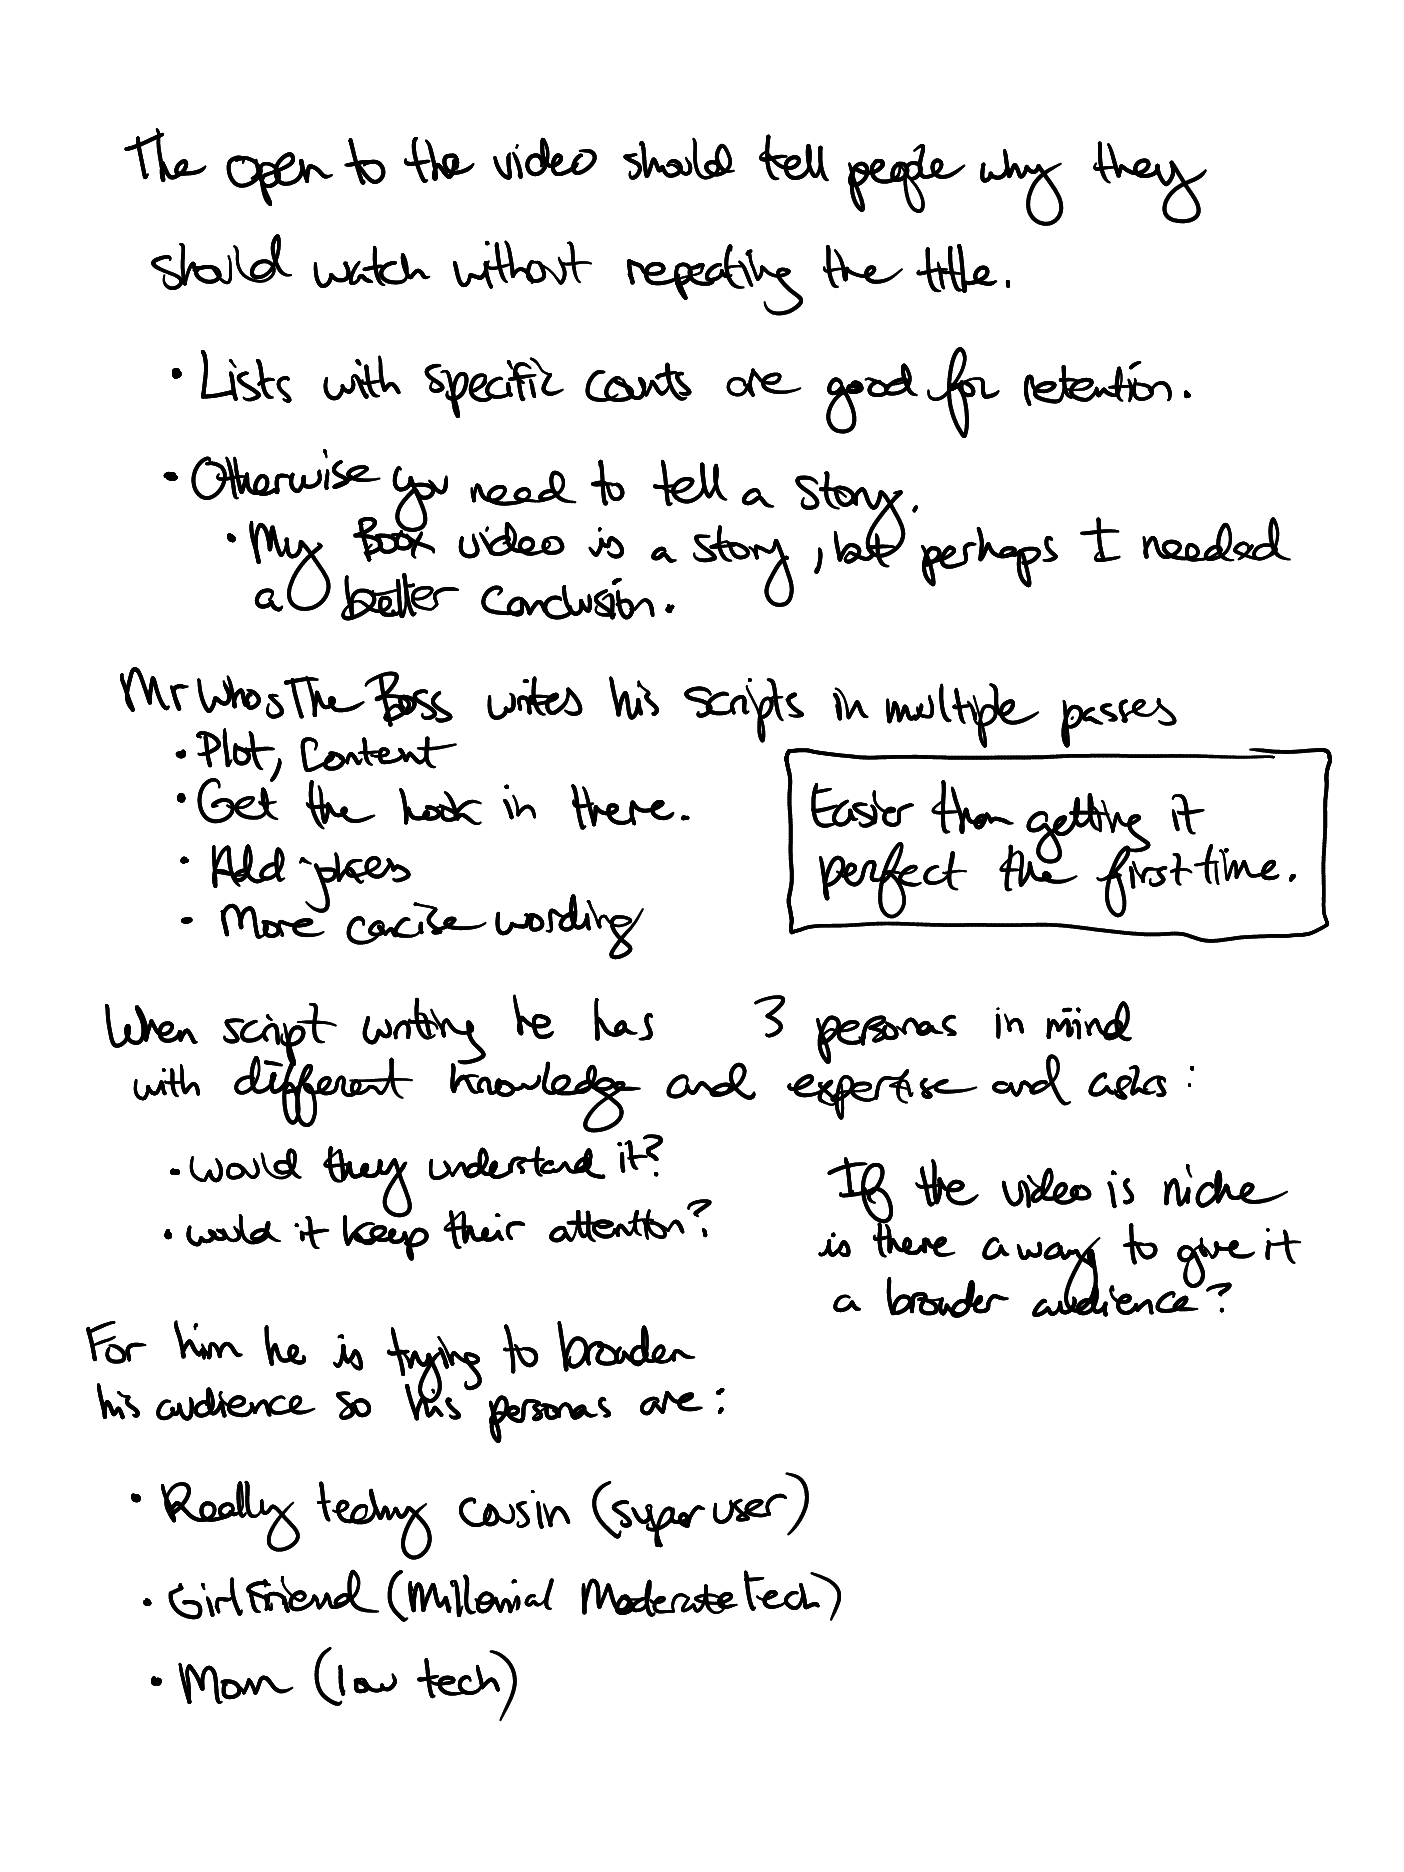 The open to the video should tell people why they
should watch without repeating the title.
• Lists with specific counts are good for retention.
• Otherwise you need to tell a story.
• My Boox video is a story, but perhaps I needed
a better conclusion.
MrWhosTheBoss writes his scripts in multiple passes
• Plot, Content
• Get the hook in there.
• Add jokes
• More concise wording
Easier than getting it
perfect the first time.
When script writing he has 3 personas in mind
with different knowledge and expertise and asks:
• would they understand it?
• would it keep their attention?
If the video is niche
is there a way to give it
a broader audience?
For him he is trying to broaden
his audience so his personas are:
• Really techy cousin (super user)
• Girlfriend (Millenial Moderate Tech)
• Mom (low tech)